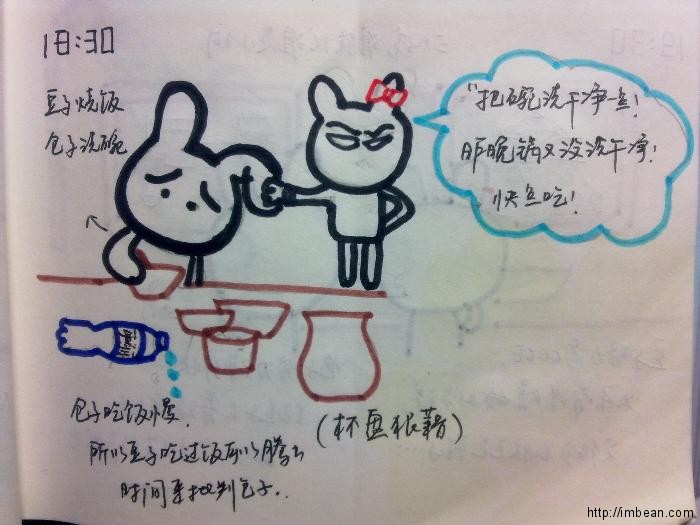 18:30
豆子烧饭
包子洗碗
"把碗洗干净一点!
昨晚锅又没洗干净!
快点吃!
包子吃饭慢.
所以豆子吃过饭可以腾出
时间来批判包子..
(杯盘狼藉)
http://imbean.com